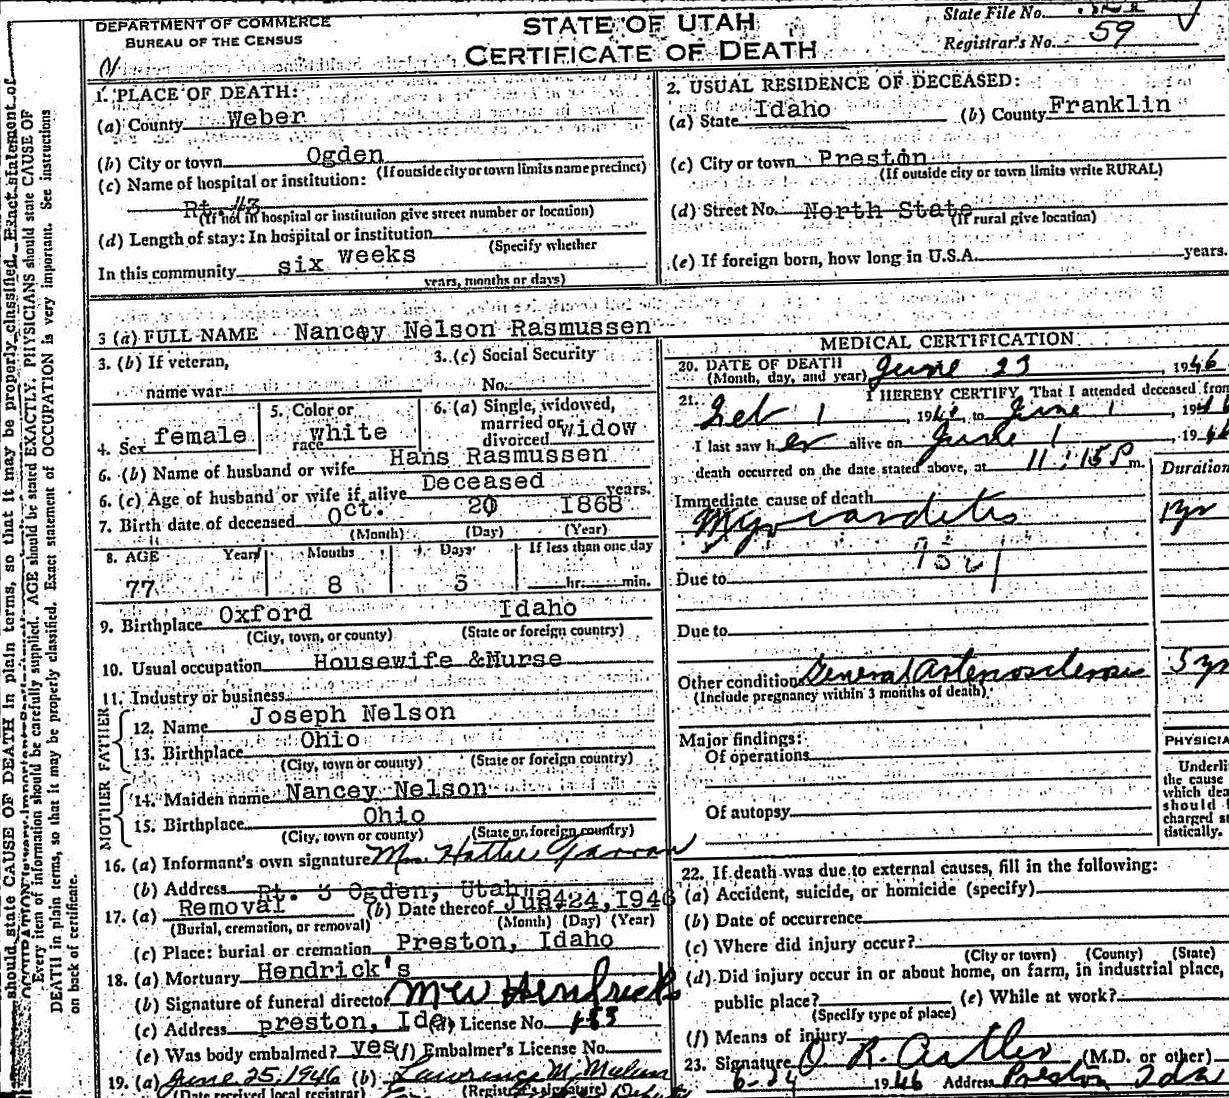 DEPARTMENT OF COMMERCE
BUREAU OF THE CENSUS
STATE OF UTAH
CERTIFICATE OF DEATH
State File No.
Registrar's No. 59
1. PLACE OF DEATH:
(a) County Weber
(b) City or town Ogden
(If outside city or town limits name precinct)
(c) Name of hospital or institution:
Rt. #3
(If not in hospital or institution give street number or location)
(d) Length of stay: In hospital or institution
(Specify whether
In this community six weeks
years, months or days)
2. USUAL RESIDENCE OF DECEASED:
(a) State Idaho (b) County Franklin
(c) City or town Preston
(If outside city or town limits write RURAL)
(d) Street No. North State
(If rural give location)
(e) If foreign born, how long in U.S.A. years.
3 (a) FULL NAME Nancey Nelson Rasmussen
3. (b) If veteran,
name war
3. (c) Social Security
No.
4. Sex female
5. Color or
race white
6. (a) Single, widowed,
married or
divorced widow
6. (b) Name of husband or wife Hans Rasmussen
6. (c) Age of husband or wife if alive Deceased years.
7. Birth date of deceased Oct. 20 1868
(Month) (Day) (Year)
8. AGE Years Months Days If less than one day
77 8 3 hr. min.
9. Birthplace Oxford Idaho
(City, town, or county) (State or foreign country)
10. Usual occupation Housewife &Nurse
11. Industry or business
FATHER
12. Name Joseph Nelson
13. Birthplace Ohio
(City, town or county) (State or foreign country)
MOTHER
14. Maiden name Nancey Nelson
15. Birthplace Ohio
(City, town or county) (State or foreign country)
16. (a) Informant's own signature Mrs. Hattie
(b) Address Rt. 3 Ogden, Utah
17. (a) Removal (b) Date thereof June 24, 1946
(Burial, cremation, or removal) (Month) (Day) (Year)
(c) Place: burial or cremation Preston, Idaho
18. (a) Mortuary Hendrick's
(b) Signature of funeral director Hendricks
(c) Address preston, Ida (d) License No.
(e) Was body embalmed? yes (f) Embalmer's License No.
19. (a) June 25, 1946 (b) Lawrence M.
(Date received local registrar) (Registrar's signature) Deputy
MEDICAL CERTIFICATION
20. DATE OF DEATH
(Month, day, and year) June 23, 1946
21. I HEREBY CERTIFY, That I attended deceased from
Feb 1, 194 to June 1, 194
I last saw her alive on June 1, 1946
death occurred on the date stated above, at 11:15 P m.
Duration
Immediate cause of death
Myocarditis 1 yr
Due to
Due to
Other condition General Arteriosclerosis 5 yr
(Include pregnancy within 3 months of death)
Major findings:
Of operations
Of autopsy
PHYSICIA
Underli
the cause
which dea
should
charged st
tistically.
22. If death was due to external causes, fill in the following:
(a) Accident, suicide, or homicide (specify)
(b) Date of occurrence
(c) Where did injury occur?
(City or town) (County) (State)
(d) Did injury occur in or about home, on farm, in industrial place,
public place? (e) While at work?
(Specify type of place)
(f) Means of injury
23. Signature O R. Cutler (M.D. or other)
6-24 1946 Address Preston Ida
should state CAUSE OF DEATH in plain terms, so that it may be properly classified. Exact statement of
Every item of information should be carefully supplied. AGE should be stated EXACTLY. PHYSICIANS should state CAUSE OF
DEATH in plain terms, so that it may be properly classified. Exact statement of OCCUPATION is very important. See instructions
on back of certificate.